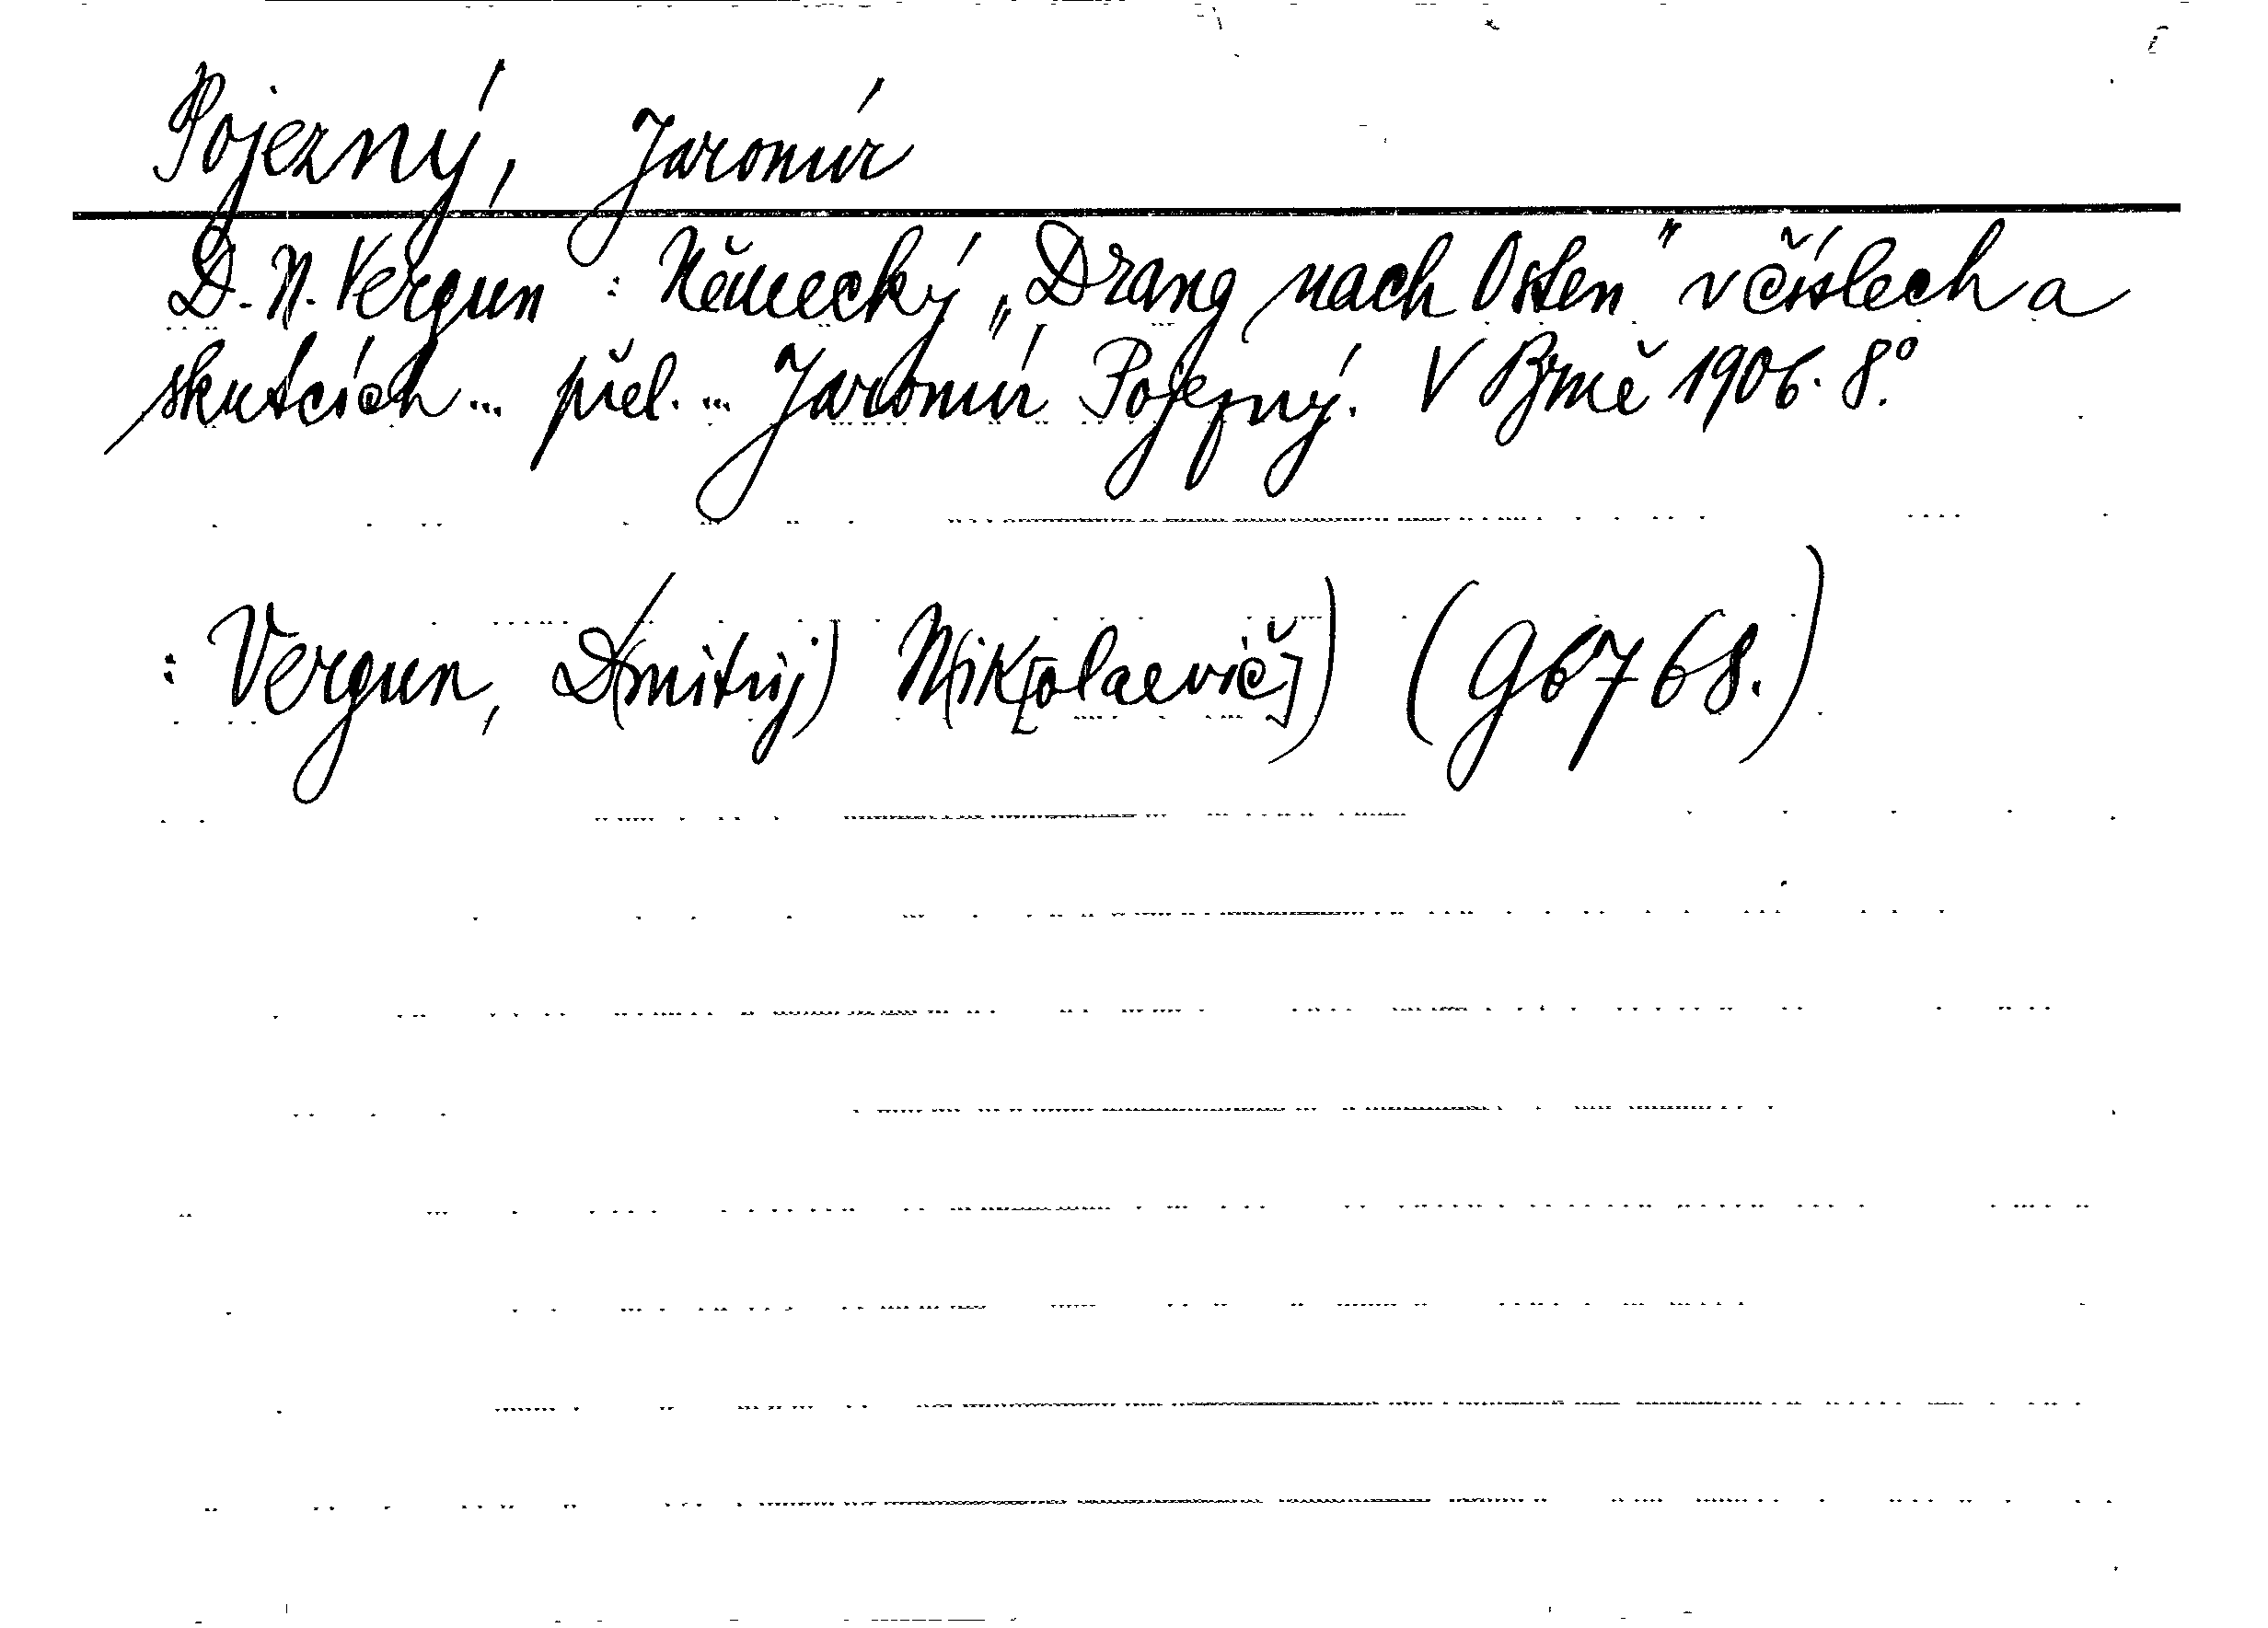 Pojezný, Jaromír
D. N. Vergun : Německý „Drang nach Osten" v číslech a
skutcích ... přel. ... Jaromír Pojezný. V Brně 1906. 8°.
: Vergun, D(mitrij) N(ik[olaevič]) (G6768.)